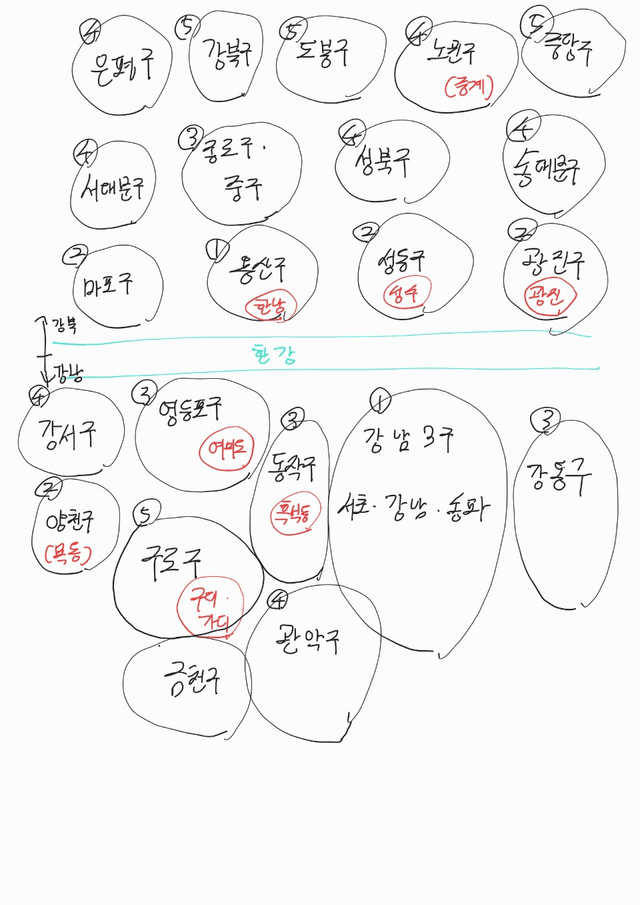 ④ 은평구
⑤ 강북구
⑤ 도봉구
④ 노원구
(중계)
⑤ 중랑구
④ 서대문구
③ 종로구·
중구
④ 성북구
④
② 마포구
① 용산구
한남
② 성동구
성수
② 광진구
광진
강북
한강
강남
④ 강서구
③ 영등포구
여의도
③ 동작구
흑석동
① 강남3구
서초·강남·송파
③ 강동구
② 양천구
(목동)
⑤ 구로구
구디·
가디
④ 관악구
금천구